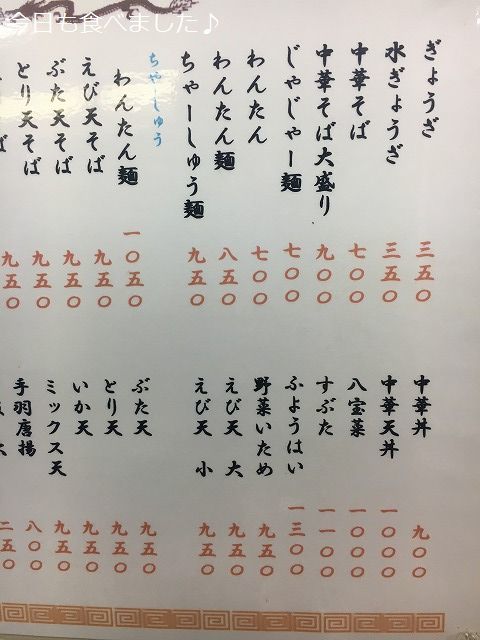 今日も食べました♪
ぎょうざ 三五〇
水ぎょうざ 三五〇
中華そば 七〇〇
中華そば大盛り 九〇〇
じゃじゃー麺 七〇〇
わんたん 七〇〇
わんたん麺 八五〇
ちゃーしゅう麺 九五〇
ちゃーしゅう
わんたん麺 一〇五〇
えび天そば 九五〇
ぶた天そば 九五〇
とり天そば 九五〇
九五〇
中華丼 九〇〇
中華天丼 一〇〇〇
八宝菜 一〇〇〇
すぶた 一一〇〇
ふようはい 一三〇〇
野菜いため 九五〇
えび天 大 九五〇
えび天 小 九五〇
ぶた天 九五〇
とり天 九五〇
いか天 九五〇
ミックス天 九五〇
手羽唐揚 八〇〇
二五〇